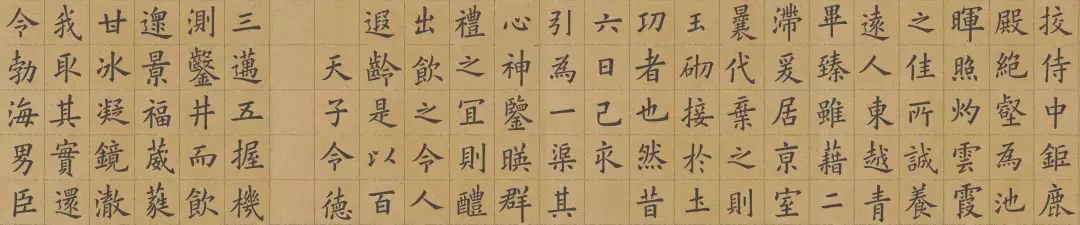 挍侍中鉅鹿
殿絶壑為池
暉照灼雲霞
之佳所誠養
遠人東越青
畢臻雖藉二
滯爰居京室
曩代棄之則
玉砌接於土
㓛者也然昔
六日己求
引為一渠其
心神鑒暎群
禮之宜則醴
出飲之令人
遐齡是以百
天子令德
三邁五握機
測鑿井而飲
景福葳蕤
甘冰凝鏡澈
我取其實還
令勃海男臣